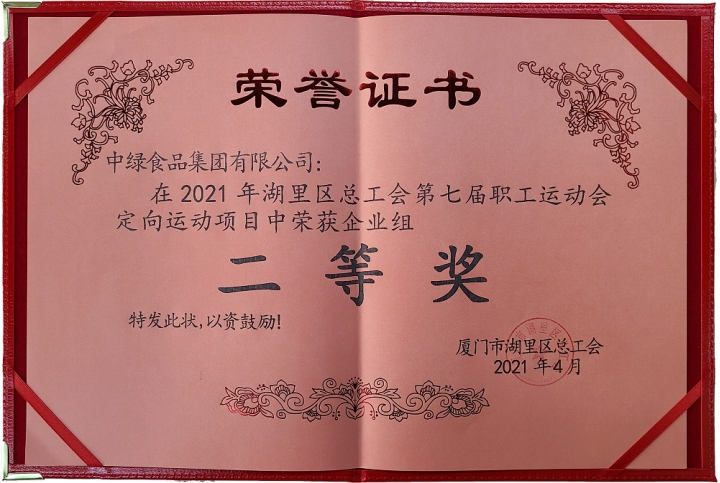 荣誉证书
中绿食品集团有限公司：
在 2021 年湖里区总工会第七届职工运动会
定向运动项目中荣获企业组
二等奖
特发此状，以资鼓励！
厦门市湖里区总工会
2021 年 4 月